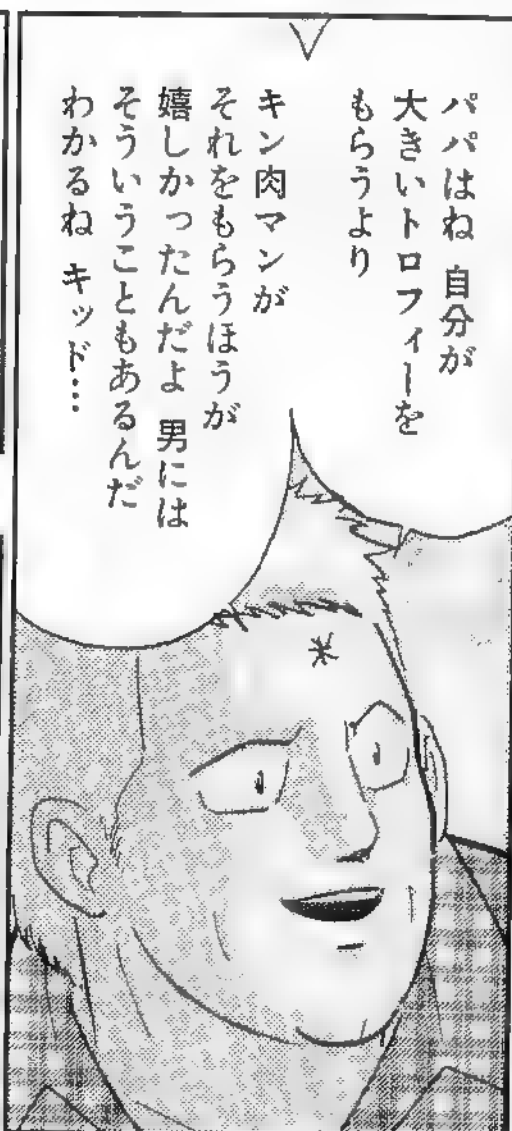 パパはね 自分が
大きいトロフィーを
もらうより
キン肉マンが
それをもらうほうが
嬉しかったんだよ 男には
そういうこともあるんだ
わかるね キッド…